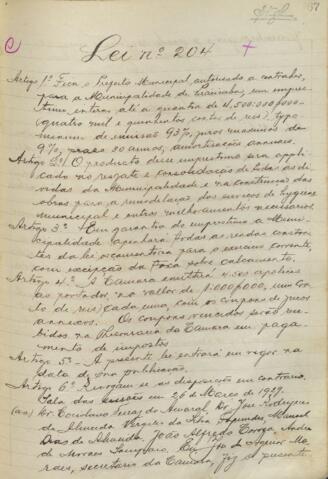 57
Lei nº 204
Artigo 1º Fica o Prefeito Municipal autorisado a contrahir,
para a Municipalidade de Piracicaba, um empres-
timo externo até a quantia de 4.500:000$000
(quatro mil e quinhentos contos de reis), typo
minimo de emissão 93%, juros maximos de
9%, prazo 30 annos, amortisações annuaes.
Artigo 2º O producto desse emprestimo será appli-
cado no resgate e consolidação de todas as di-
vidas da Municipalidade e na construcção das
obras para a remodelação dos serviços de hygiene
municipal e outros melhoramentos necessarios.
Artigo 3º - Em garantia do emprestimo a Muni-
cipalidade empenhará todas as rendas constan-
tes da lei orçamentaria para o exercicio corrente,
com excepção da taxa sobre calçamento.
Artigo 4º - A Camara emittirá 4.500 apolices
ao portador, no valor de 1.000$000, um con-
to de reis cada uma, com os coupons de juros
annexos. Os coupons vencidos serão rece-
bidos na Thesouraria da Camara em paga-
mento de impostos
Artigo 5º - A presente lei entrará em vigor na
data de sua publicação.
Artigo 6º Revogam-se as disposições em contrario.
Sala das sessões em 26 de Março de 1927.
(aa) Dr. Coriolano Ferraz do Amaral, Dr. José Rodrigues
de Almeida, Fernandes Manoel
Dias de Almeida, João Alfredo
de Moraes Sampaio. Eu, Mo-
raes, secretario da Camara, fiz a presente.